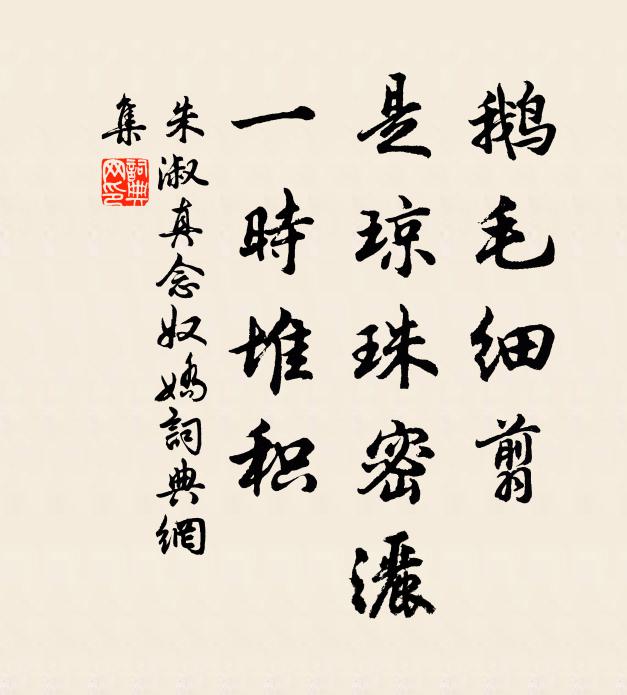 鹅毛细剪
是琼珠密灑
一時堆积
朱淑真念奴嬌詞典網
集
詞典
网印